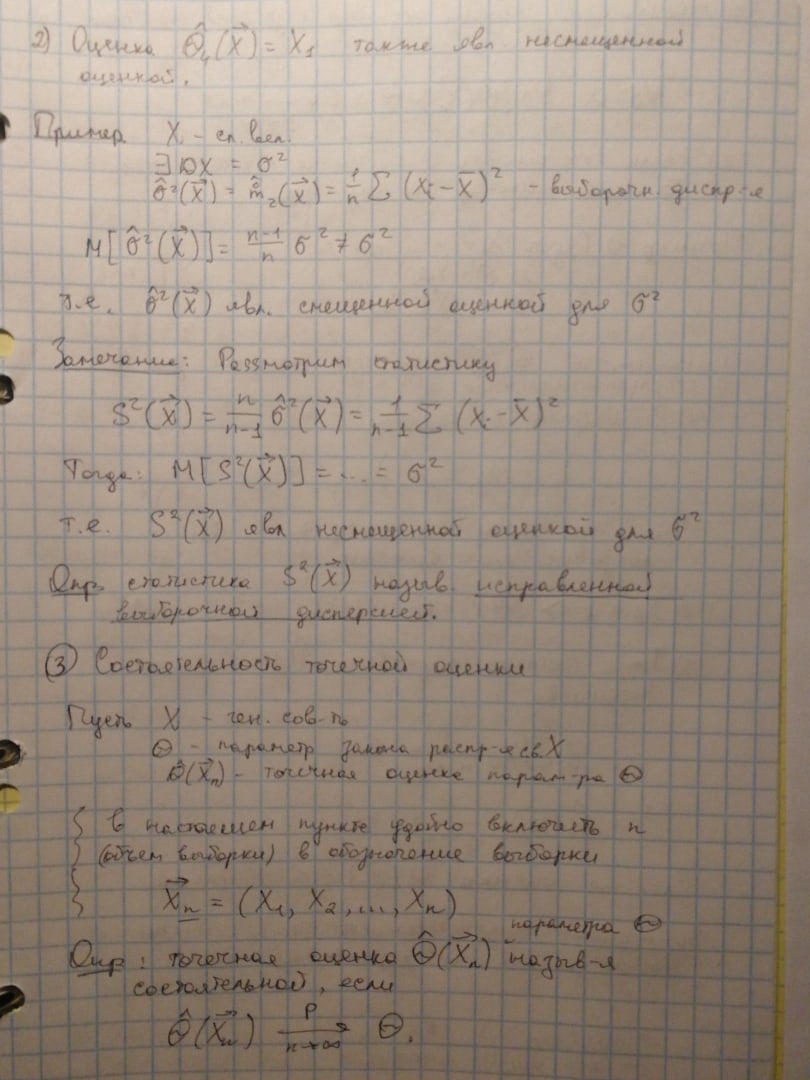 2) Оценка θ̂₄(X⃗) = X₁ также явл несмещенной
оценкой.
Пример X – сл. вел.
∃ DX = σ²
σ̂²(X⃗) = m̂₂(X⃗) = 1/n Σ (Xᵢ – X̄)² – выборочн. диспр-я
M[σ̂²(X⃗)] = n–1/n σ² ≠ σ²
т.е. σ̂²(X⃗) явл. смещенной оценкой для σ²
Замечание: Рассмотрим статистику
S²(X⃗) = n/n–1 σ̂²(X⃗) = 1/n–1 Σ (Xᵢ – X̄)²
Тогда: M[S²(X⃗)] = ... = σ²
т.е. S²(X⃗) явл несмещенной оценкой для σ²
Опр. статистика S²(X⃗) назыв. исправленной
выборочной дисперсией.
③ Состоятельность точечной оценки
Пусть X – ген. сов-ть
θ – параметр закона распр-я св. X
θ̂(X⃗ₙ) – точечная оценка парам-ра θ
{ в настоящем пункте удобно включить n
(объем выборки) в обозначение выборки
X⃗ₙ = (X₁, X₂, ..., Xₙ)
параметра θ
Опр: точечная оценка θ̂(X⃗ₙ) назыв-я
состоятельной, если
θ̂(X⃗ₙ) —P→ n→∞ θ.